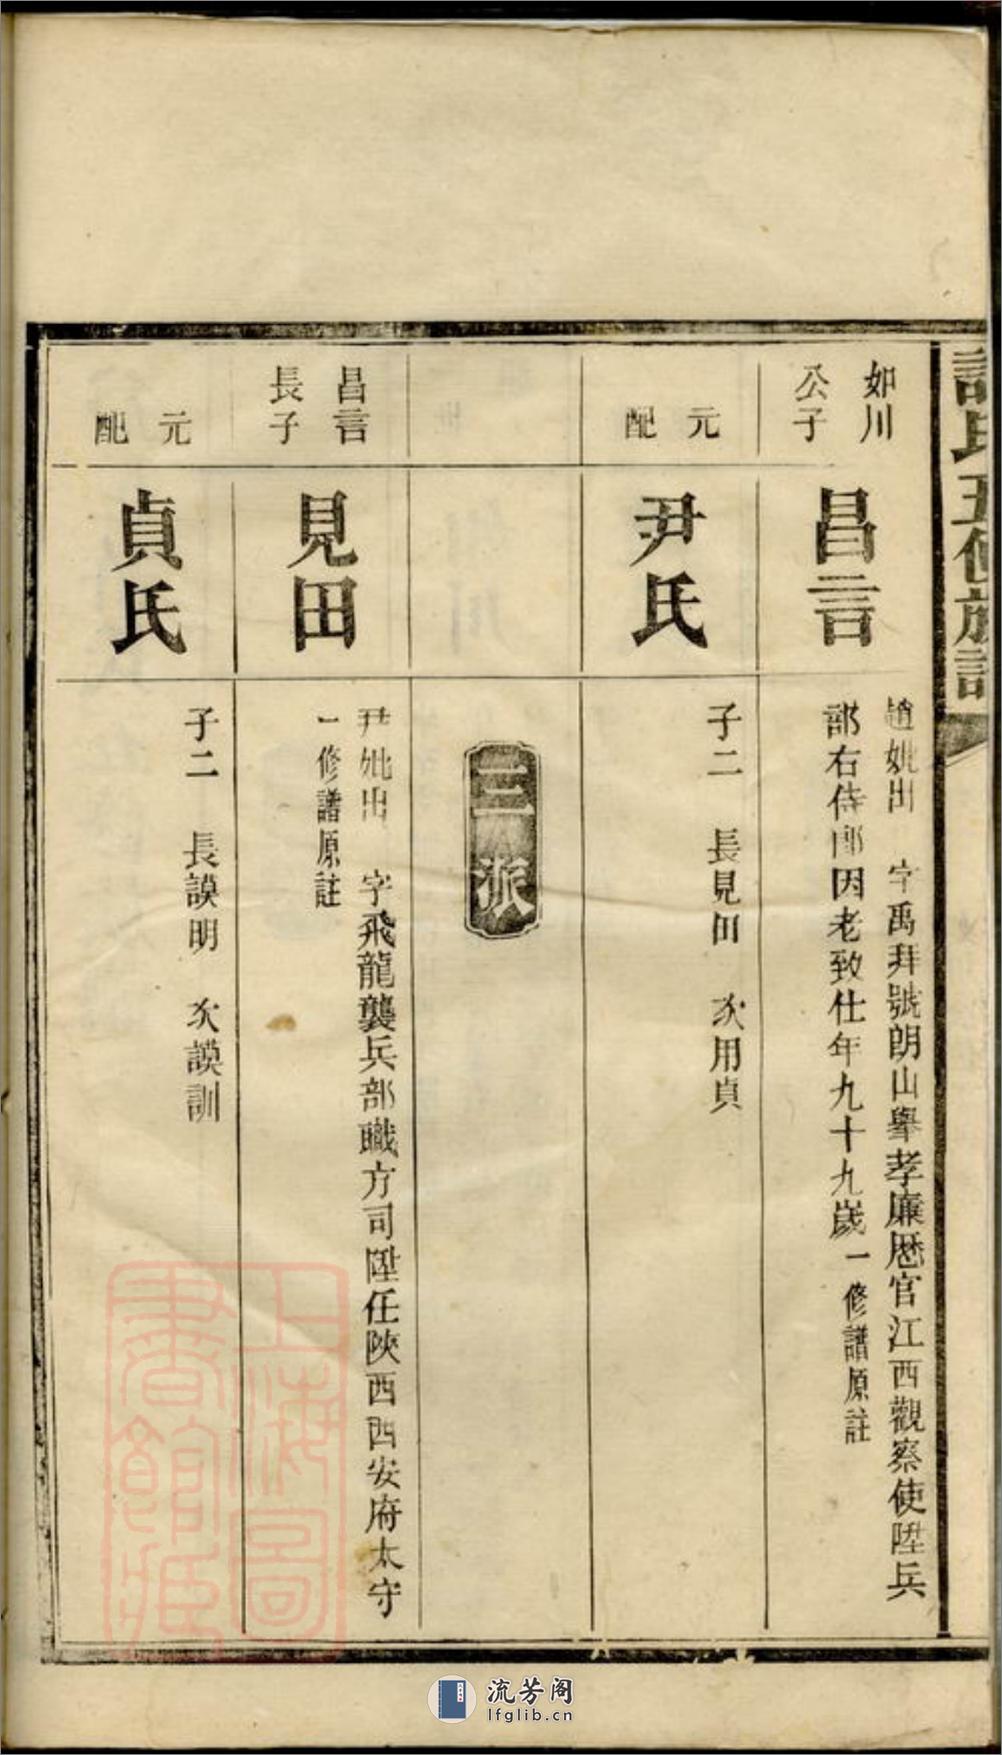 氏五修族譜
如川
公子
昌言
趙妣出 字禹拜號朗山舉孝廉歷官江西觀察使陞兵
部右侍郎因老致仕年九十九歲一修譜原註
元
配
尹氏
子二 長見田 次用貞
三派
昌言
長子
見田
尹妣出 字飛龍襲兵部職方司陞任陝西西安府太守
一修譜原註
元
配
貞氏
子二 長謨明 次謨訓
上海圖
書館藏
流芳阁
lfglib.cn